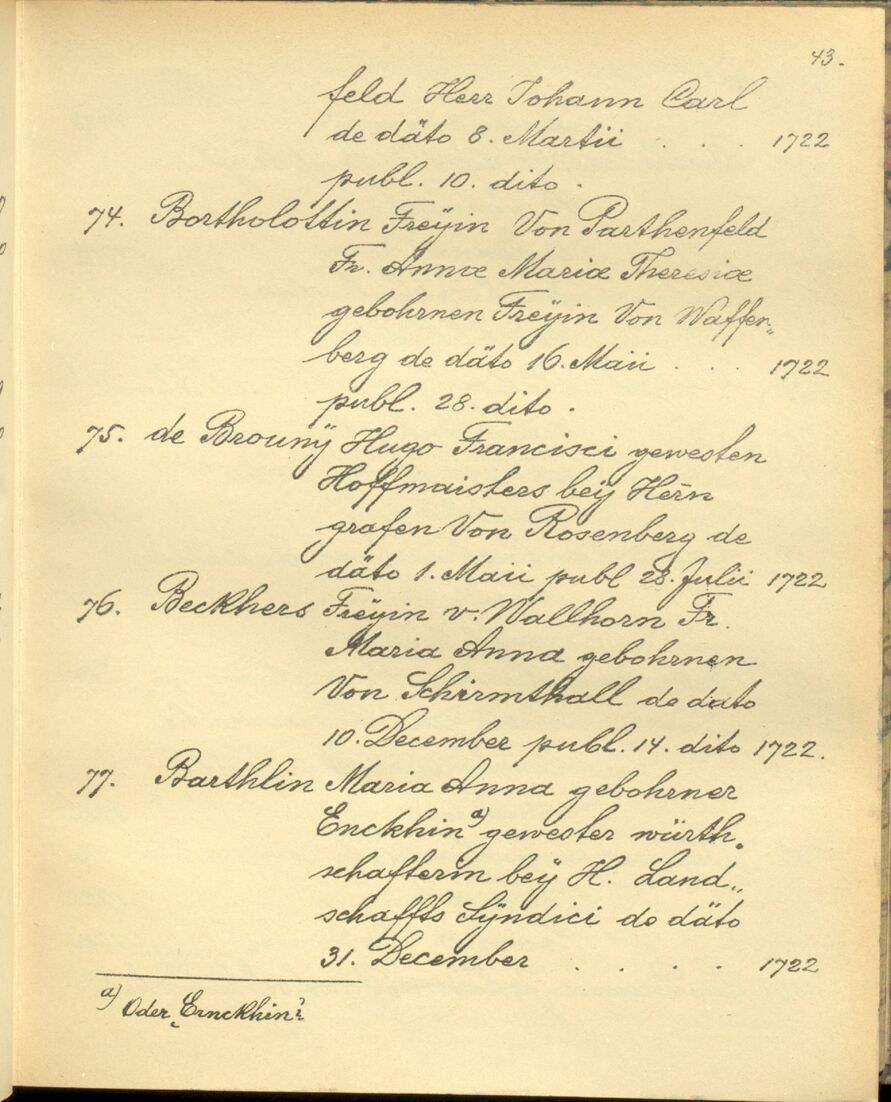 43.
feld Herr Johann Carl
de däto 8. Martii . . . 1722
publ. 10. dito.
74. Bortholottin Freÿin Von Parthenfeld
Fr. Annæ Mariæ Theresiæ
gebohrnen Freÿin Von Waffen„
berg de däto 16. Maii . . . 1722
publ. 28. dito.
75. de Brounÿ Hugo Francisci gewesten
Hoffmaisters beÿ Herrn
grafen Von Rosenberg de
däto 1. Maii publ 28. Julii 1722
76. Beckhers Freÿin v. Wallhorn Fr.
Maria Anna gebohrnen
Von Schirmthall de dato
10. December publ. 14. dito 1722.
77. Barthlin Maria Anna gebohrner
Enckhin a) gewester würth„
schafterin beÿ H. Land„
schaffts Sÿndici de däto
31. December . . . . 1722
a) Oder „Ernckhin"?